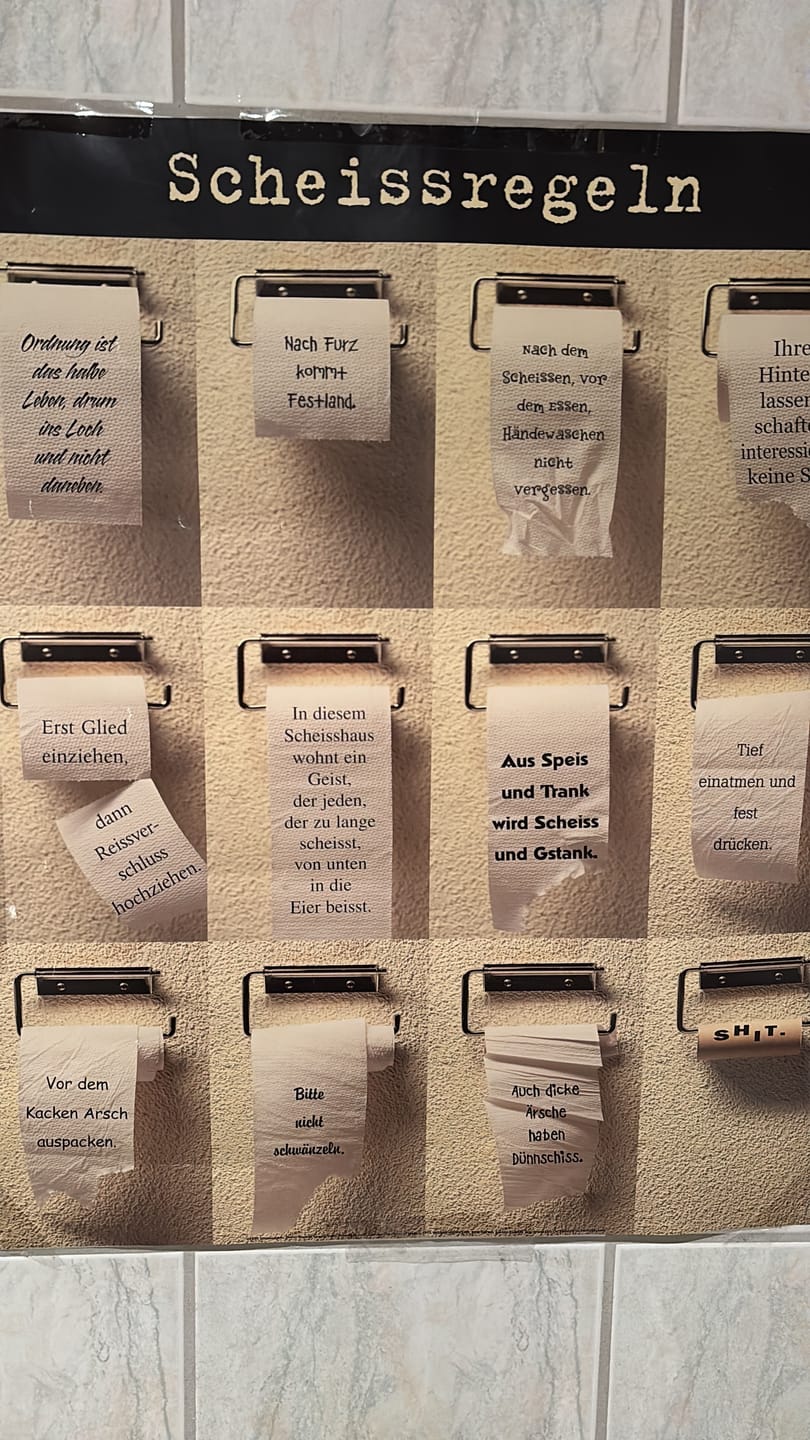 Scheissregeln
Ordnung ist
das halbe
Leben, drum
ins Loch
und nicht
daneben.
Nach Furz
kommt
Festland.
Nach dem
Scheissen, vor
dem Essen,
Händewaschen
nicht
vergessen.
Ihre
Hinte
lassen
schafte
interessie
keine S
Erst Glied
einziehen,
dann
Reissver-
schluss
hochziehen.
In diesem
Scheisshaus
wohnt ein
Geist,
der jeden,
der zu lange
scheisst,
von unten
in die
Eier beisst.
Aus Speis
und Trank
wird Scheiss
und Gstank.
Tief
einatmen und
fest
drücken.
Vor dem
Kacken Arsch
auspacken.
Bitte
nicht
schwänzeln.
Auch dicke
Ärsche
haben
Dünnschiss.
SHIT.